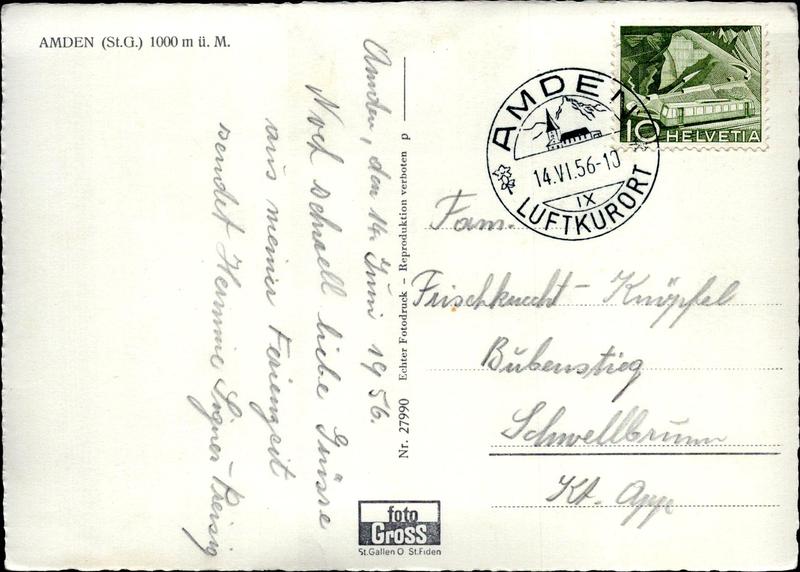 AMDEN (St.G.) 1000 m ü. M.
Amden, den 14. Juni 1956.
Noch schnell liebe Grüsse
aus meiner Ferienzeit
sendet Hermine Signer-Preisig
Nr. 27990 Echter Fotodruck – Reproduktion verboten p
AMDEN
14.VI.56-10
IX
LUFTKURORT
10 HELVETIA
Fam.
Frischknecht - Knöpfel
Bubenstieg
Schwellbrunn
Kt. App.
foto
Gross
St.Gallen O St.Fiden